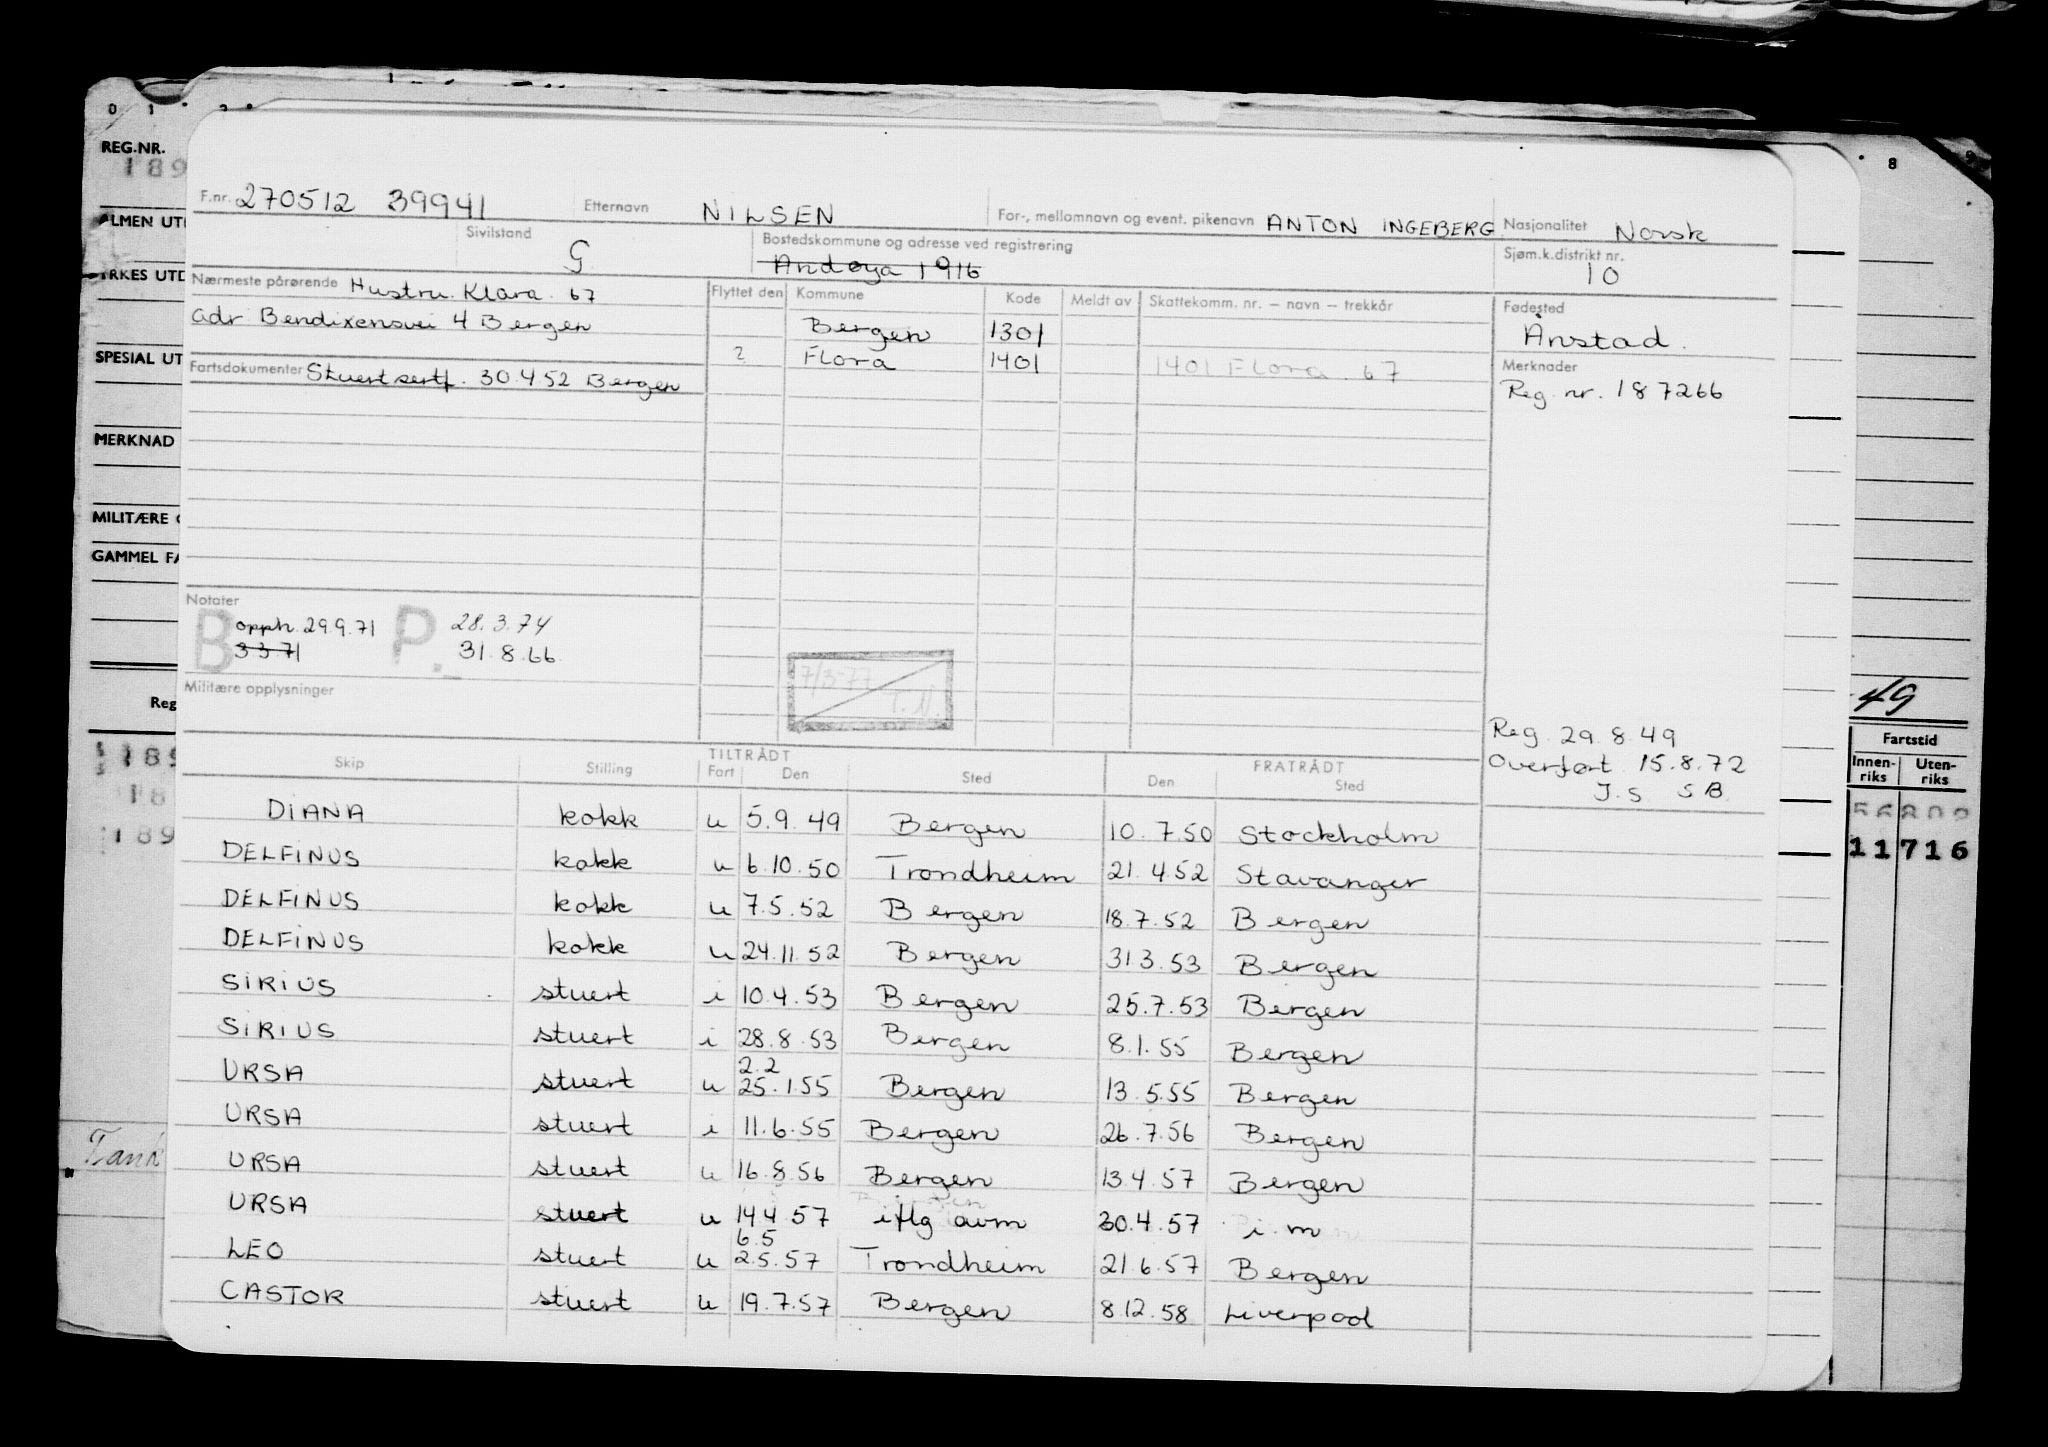 0 1 8
REG.NR.
189
ALMEN UT
YRKES UTD
SPESIAL UT
MERKNAD
MILITÆRE
GAMMEL FA
Reg
189
18
189
Tank
F.nr. 270512 39941 Etternavn NILSEN For-, mellomnavn og event. pikenavn ANTON INGEBERG Nasjonalitet Norsk
Sivilstand G Bostedskommune og adresse ved registrering Andøya 1916 Sjøm.k.distrikt nr. 10
Nærmeste pårørende Hustru. Klara. 67 Flyttet den Kommune Kode Meldt av Skattekomm. nr. – navn – trekkår Fødested
adr. Bendixensvei 4 Bergen Bergen 1301 Ånstad.
? Flora 1401 1401 Flora. 67 Merknader
Fartsdokumenter Stuertsertf. 30.4.52 Bergen Reg. nr. 187266
Notater
B opph. 29.9.71 P. 28.3.74
3 3.71 31.8.66.
7/3-77 T.N.
Militære opplysninger
Reg. 29.8.49
Overført 15.8.72
J.S SB.
49
Fartstid
Innen-riks Uten-riks
11716
TILTRÅDT FRATRÅDT
Skip Stilling Fart Den Sted Den Sted
DIANA kokk u 5.9.49 Bergen 10.7.50 Stockholm
DELFINUS kokk u 6.10.50 Trondheim 21.4.52 Stavanger
DELFINUS kokk u 7.5.52 Bergen 18.7.52 Bergen
DELFINUS kokk u 24.11.52 Bergen 31.3.53 Bergen
SIRIUS stuert i 10.4.53 Bergen 25.7.53 Bergen
SIRIUS stuert i 28.8.53 Bergen 8.1.55 Bergen
2.2
URSA stuert u 25.1.55 Bergen 13.5.55 Bergen
URSA stuert i 11.6.55 Bergen 26.7.56 Bergen
URSA stuert u 16.8.56 Bergen 13.4.57 Bergen
URSA stuert u 14.4.57 iflg avm 30.4.57 i. m
6.5
LEO stuert u 2.5.57 Trondheim 21.6.57 Bergen
CASTOR stuert u 19.7.57 Bergen 8.12.58 Liverpool